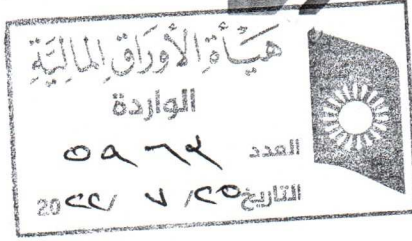 هَيْأَةُ الأَوْرَاقِ المَالِيَّةِ
الواردة
العدد ٥٩٦٢
التاريخ ٢٥/ ٧ /20٢٢